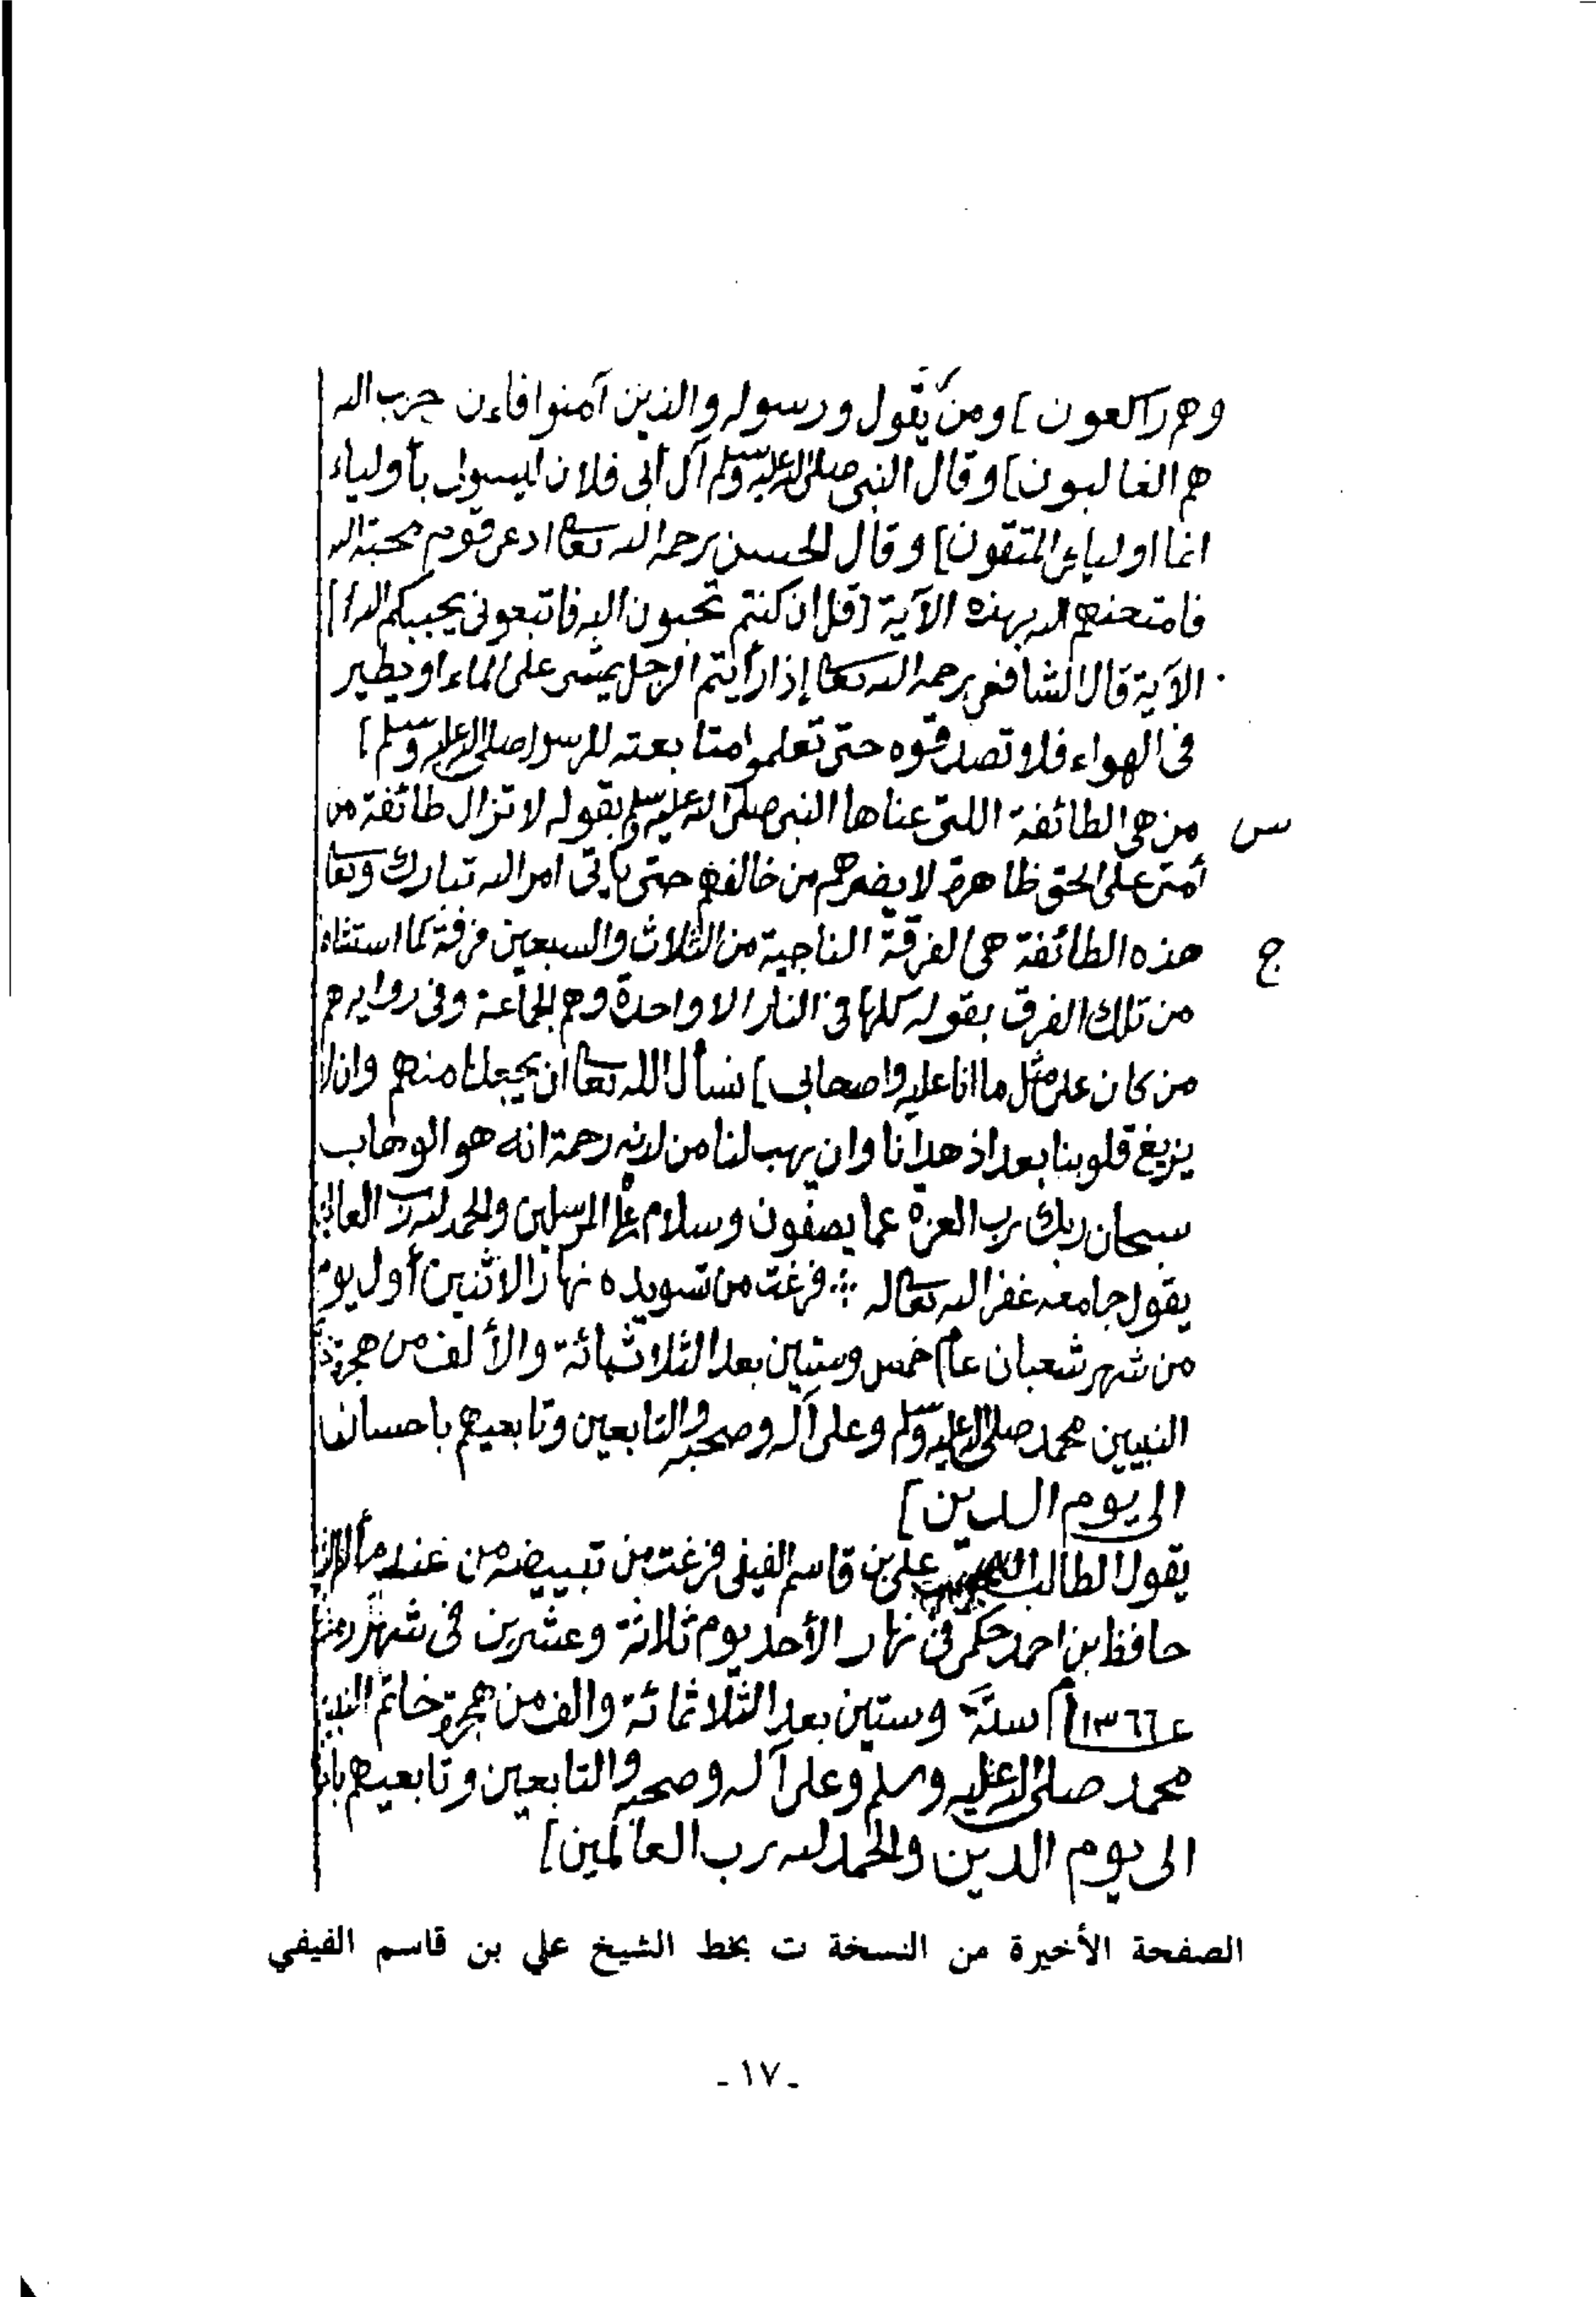 وهم راكعون] ومن يقول ورسوله والذين آمنوا فاءن حزب الله
هم الغالبون] وقال النبي صلى الله عليه وسلم آل أبى فلان ليسولى بأولياء
انما اوليائى المتقون] وقال الحسن رحمه الله تعالى ادعى قوم محبة الله
فامتحنهم الله بهذه الآية [قل ان كنتم تحبون الله فاتبعونى يحببكم الله]
الآية قال الشافعى رحمه الله تعالى إذا رأيتم الرجل يمشى على الماء او يطير
فى الهواء فلا تصدقوه حتى تعلموا متابعته للرسول صلى الله عليه وسلم]
س من هى الطائفة اللتى عناها النبى صلى الله عليه وسلم بقوله لا تزال طائفة من
أمتى على الحق ظاهرة لا يضرهم من خالفهم حتى يأتى امر الله تبارك وتعالى
ج هذه الطائفة هى الفرقة الناجية من الثلاث والسبعين فرقة كما استثناه
من تلك الفرق بقوله كلها فى النار الا واحدة وهم الجماعة وفى رواية هم
من كان على مثل ما انا عليه واصحابى] نسأل الله تعالى ان يجعلنا منهم وان لا
يزيغ قلوبنا بعد اذ هدانا وان يهب لنا من لدنه رحمة انه هو الوهاب
سبحان ربك رب العزة عما يصفون وسلام على المرسلين والحمد لله رب العالمين
يقول جامعه غفر الله تعالى له فرغت من تسويده نهار الاثنين أول يوم
من شهر شعبان عام خمس وستين بعد الثلاثمائة والألف من هجرة
النبيين محمد صلى الله عليه وسلم وعلى آله وصحبه والتابعين وتابعيهم باحسان
الى يوم الدين]
يقول الطالب على بن قاسم الفيفى فرغت من تبييضه من عند
حافظ بن احمد حكمى فى نهار الأحد يوم ثلاثة وعشرين فى شهر
١٣٦٦ ستة وستين بعد الثلاثمائة والف من هجرة خاتم النبيين
محمد صلى الله عليه وسلم وعلى آله وصحبه والتابعين وتابعيهم
الى يوم الدين والحمد لله رب العالمين]
الصفحة الأخيرة من النسخة ت بخط الشيخ علي بن قاسم الفيفي
- ١٧ -